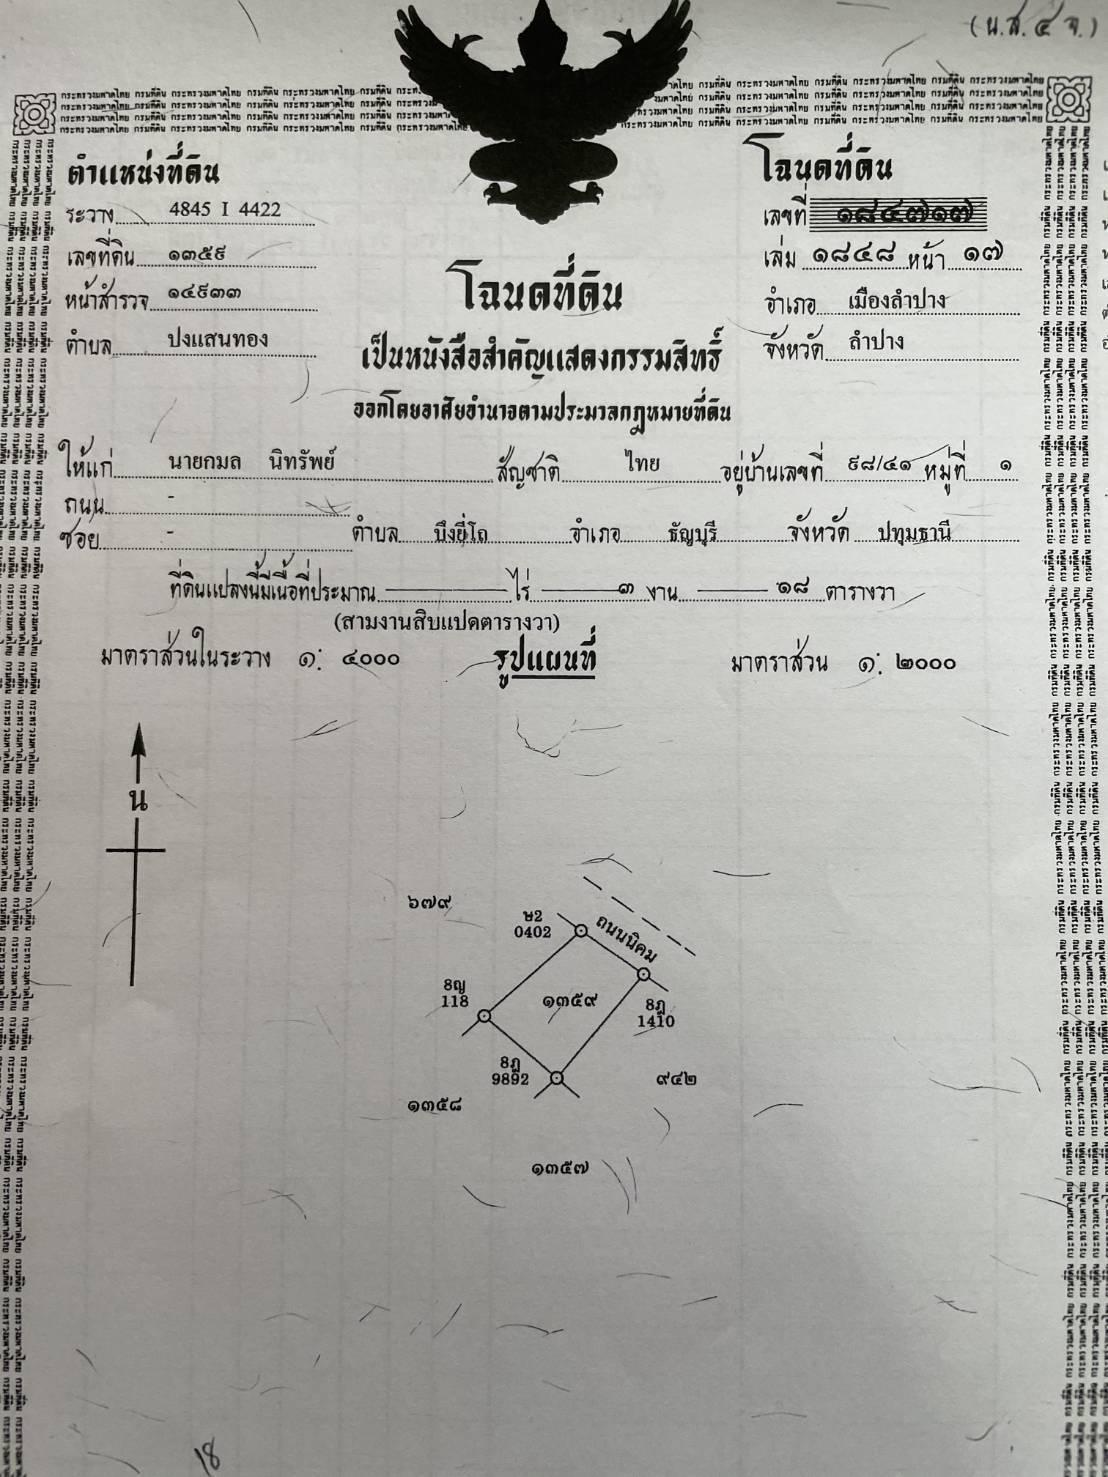 (น.ส. ๔ จ.)
กระทรวงมหาดไทย กรมที่ดิน กระทรวงมหาดไทย กรมที่ดิน กระทรวงมหาดไทย กรมที่ดิน
ตำแหน่งที่ดิน
ระวาง 4845 I 4422
เลขที่ดิน ๑๓๕๙
หน้าสำรวจ ๑๔๙๓๓
ตำบล ปงแสนทอง
โฉนดที่ดิน
เลขที่ ๑๘๔๗๑๗
เล่ม ๑๘๔๘ หน้า ๑๗
อำเภอ เมืองลำปาง
จังหวัด ลำปาง
โฉนดที่ดิน
เป็นหนังสือสำคัญแสดงกรรมสิทธิ์
ออกโดยอาศัยอำนาจตามประมวลกฎหมายที่ดิน
ให้แก่ นายกมล นิทรัพย์ สัญชาติ ไทย อยู่บ้านเลขที่ ๙๘/๔๑ หมู่ที่ ๑
ถนน -
ซอย - ตำบล บึงยี่โถ อำเภอ ธัญบุรี จังหวัด ปทุมธานี
ที่ดินแปลงนี้มีเนื้อที่ประมาณ ไร่ ๓ งาน ๑๘ ตารางวา
(สามงานสิบแปดตารางวา)
มาตราส่วนในระวาง ๑: ๔๐๐๐ รูปแผนที่ มาตราส่วน ๑: ๒๐๐๐
น
๖๗๙
ษ2
0402
ถนนนิคม
8ญ
118
๑๓๕๙
8ฎ
1410
8ฎ
9892
๙๔๒
๑๓๕๘
๑๓๕๗
18